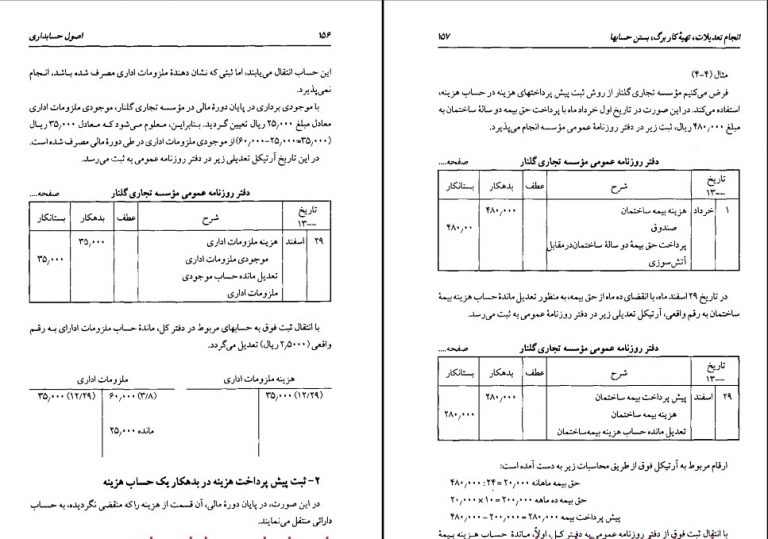 ۱۵۶
اصول حسابداری
این حساب انتقال می‌یابند، اما ثبتی که نشان دهندهٔ ملزومات اداری مصرف شده باشد، انجام
نمی‌پذیرد.
با موجودی برداری در پایان دورهٔ مالی در مؤسسه تجاری گلنار، موجودی ملزومات اداری
معادل مبلغ ۲۵٫۰۰۰ ریال تعیین گردید. بنابراین، معلوم می‌شود که معادل ۳۵٫۰۰۰ ریال
(۳۵٫۰۰۰=۲۵٫۰۰۰-۶۰٫۰۰۰) از موجودی ملزومات اداری در طی دورهٔ مالی مصرف شده است.
در این تاریخ آرتیکل تعدیلی زیر در دفتر روزنامه عمومی به ثبت می‌رسد.
دفتر روزنامه عمومی مؤسسه تجاری گلنار صفحه....
تاریخ شرح عطف بدهکار بستانکار
--۱۳
۲۹ اسفند هزینه ملزومات اداری ۳۵٫۰۰۰
موجودی ملزومات اداری ۳۵٫۰۰۰
تعدیل مانده حساب موجودی
ملزومات اداری
با انتقال ثبت فوق به حسابهای مربوط در دفتر کل، ماندهٔ حساب ملزومات ادارای به رقم
واقعی (۲٫۵۰۰۰ ریال) تعدیل می‌گردد.
هزینه ملزومات اداری ملزومات اداری
(۱۲/۲۹) ۳۵٫۰۰۰ (۳/۸) ۶۰٫۰۰۰ (۱۲/۲۹) ۳۵٫۰۰۰
مانده ۲۵٫۰۰۰
۲- ثبت پیش پرداخت هزینه در بدهکار یک حساب هزینه
در این صورت، در پایان دورهٔ مالی، آن قسمت از هزینه را که منقضی نگردیده، به حساب
دارائی منتقل می‌نمایند.
انجام تعدیلات، تهیهٔ کار برگ، بستن حسابها
۱۵۷
مثال (۴-۴)
فرض می‌کنیم مؤسسه تجاری گلنار از روش ثبت پیش پرداختهای هزینه در حساب هزینه،
استفاده می‌کند. در این صورت در تاریخ اول خرداد ماه با پرداخت حق بیمه دو سالهٔ ساختمان به
مبلغ ۴۸۰٫۰۰۰ ریال، ثبت زیر در دفتر روزنامهٔ عمومی مؤسسه انجام می‌پذیرد.
دفتر روزنامه عمومی مؤسسه تجاری گلنار صفحه....
تاریخ شرح عطف بدهکار بستانکار
--۱۳
۱ خرداد هزینه بیمه ساختمان ۴۸۰٫۰۰۰
صندوق ۴۸۰٫۰۰
پرداخت حق بیمهٔ دو سالهٔ ساختمان‌درمقابل
آتش‌سوزی
در تاریخ ۲۹ اسفند ماه، با انقضای ده ماه از حق بیمه، به منظور تعدیل ماندهٔ حساب هزینه بیمهٔ
ساختمان به رقم واقعی، آرتیکل تعدیلی زیر در دفتر روزنامهٔ عمومی به ثبت می‌رسد.
دفتر روزنامه عمومی مؤسسه تجاری گلنار صفحه....
تاریخ شرح عطف بدهکار بستانکار
--۱۳
۲۹ اسفند پیش پرداخت بیمه ساختمان ۲۸۰٫۰۰۰
هزینه بیمه ساختمان ۲۸۰٫۰۰۰
تعدیل مانده حساب هزینه بیمه‌ساختمان
ارقام مربوط به آرتیکل فوق از طریق محاسبات زیر به دست آمده است:
حق بیمه ماهانه ۲۰٫۰۰۰ = ۲۴ : ۴۸۰٫۰۰۰
حق بیمه ده ماهه ۲۰۰٫۰۰۰ = ۱۰ × ۲۰٫۰۰۰
پیش پرداخت بیمه ۲۸۰٫۰۰۰ = ۲۰۰٫۰۰۰ - ۴۸۰٫۰۰۰
با انتقال ثبت فوق از دفتر روزنامه عمومی به دفتر کل، اولاً، ماندهٔ حساب هزینه بیمهٔ